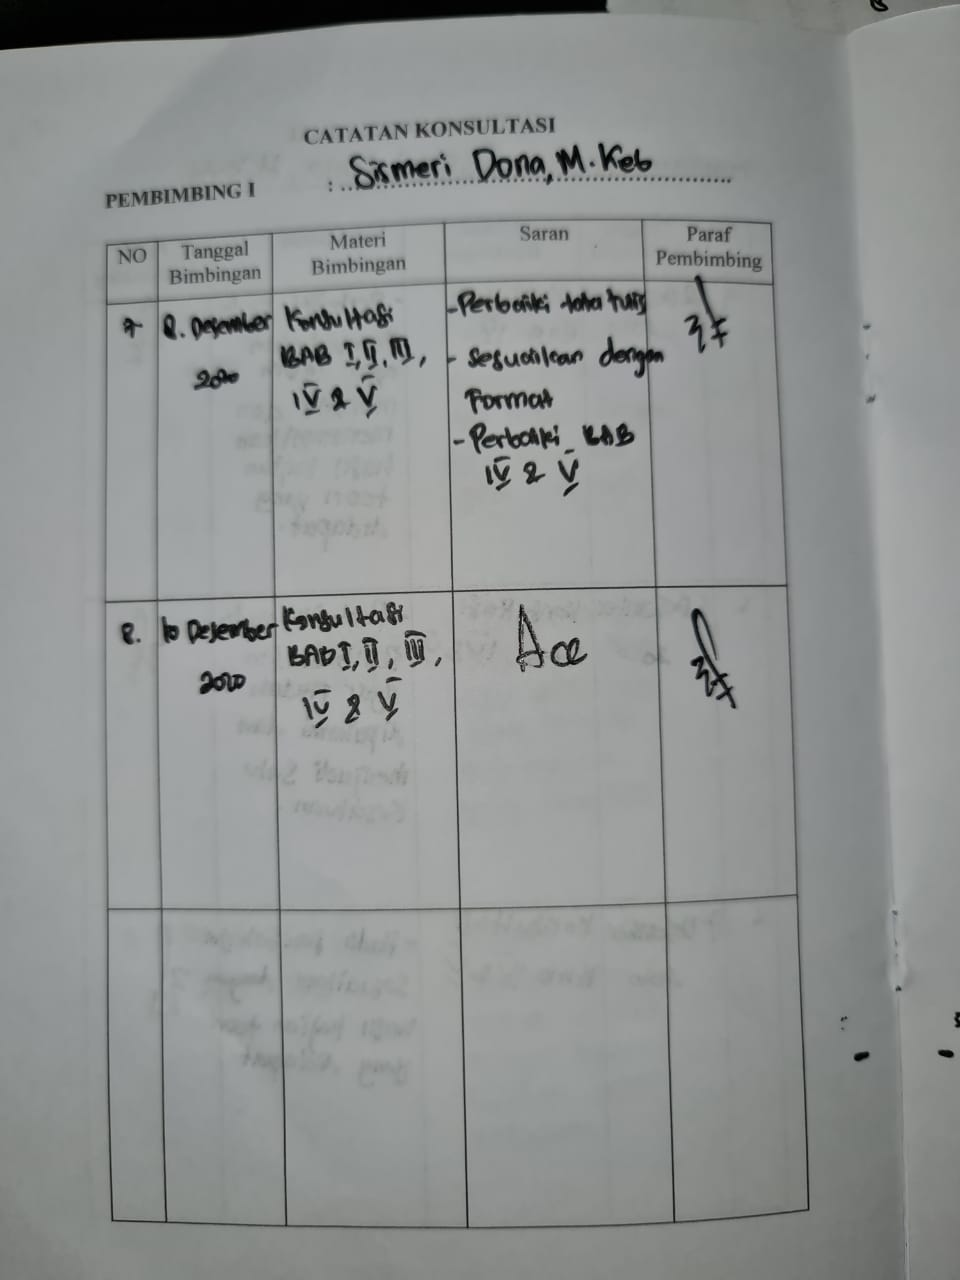 CATATAN KONSULTASI
PEMBIMBING I : Sismeri Dona, M.Keb
NO
Tanggal
Bimbingan
Materi
Bimbingan
Saran
Paraf
Pembimbing
7
8. Desember
2020
Konsultasi
BAB I, II, III,
IV & V
- Perbaiki tata tulis
- Sesuaikan dengan
Format
- Perbaiki BAB
IV & V
8.
10 Desember
2020
Konsultasi
BAB I, II, III,
IV & V
Acc